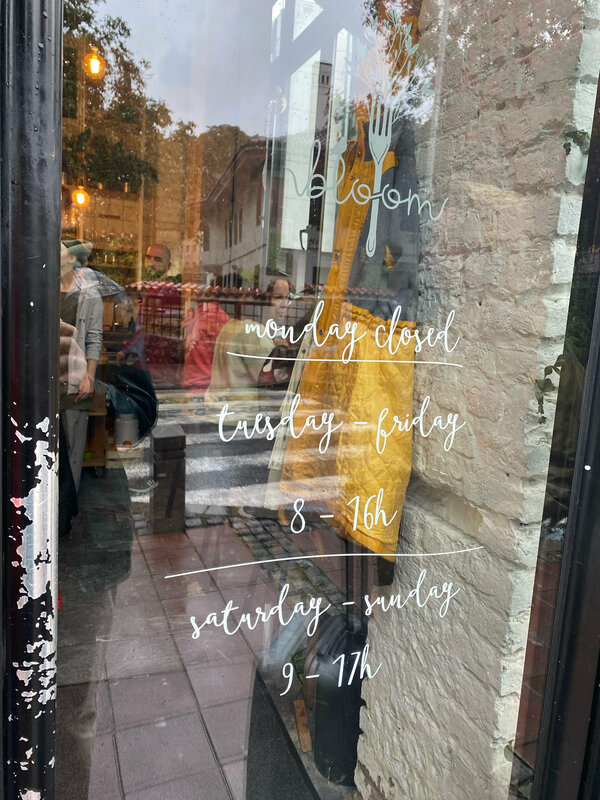 bloom
monday closed
tuesday - friday
8 - 16h
saturday - sunday
9 - 17h